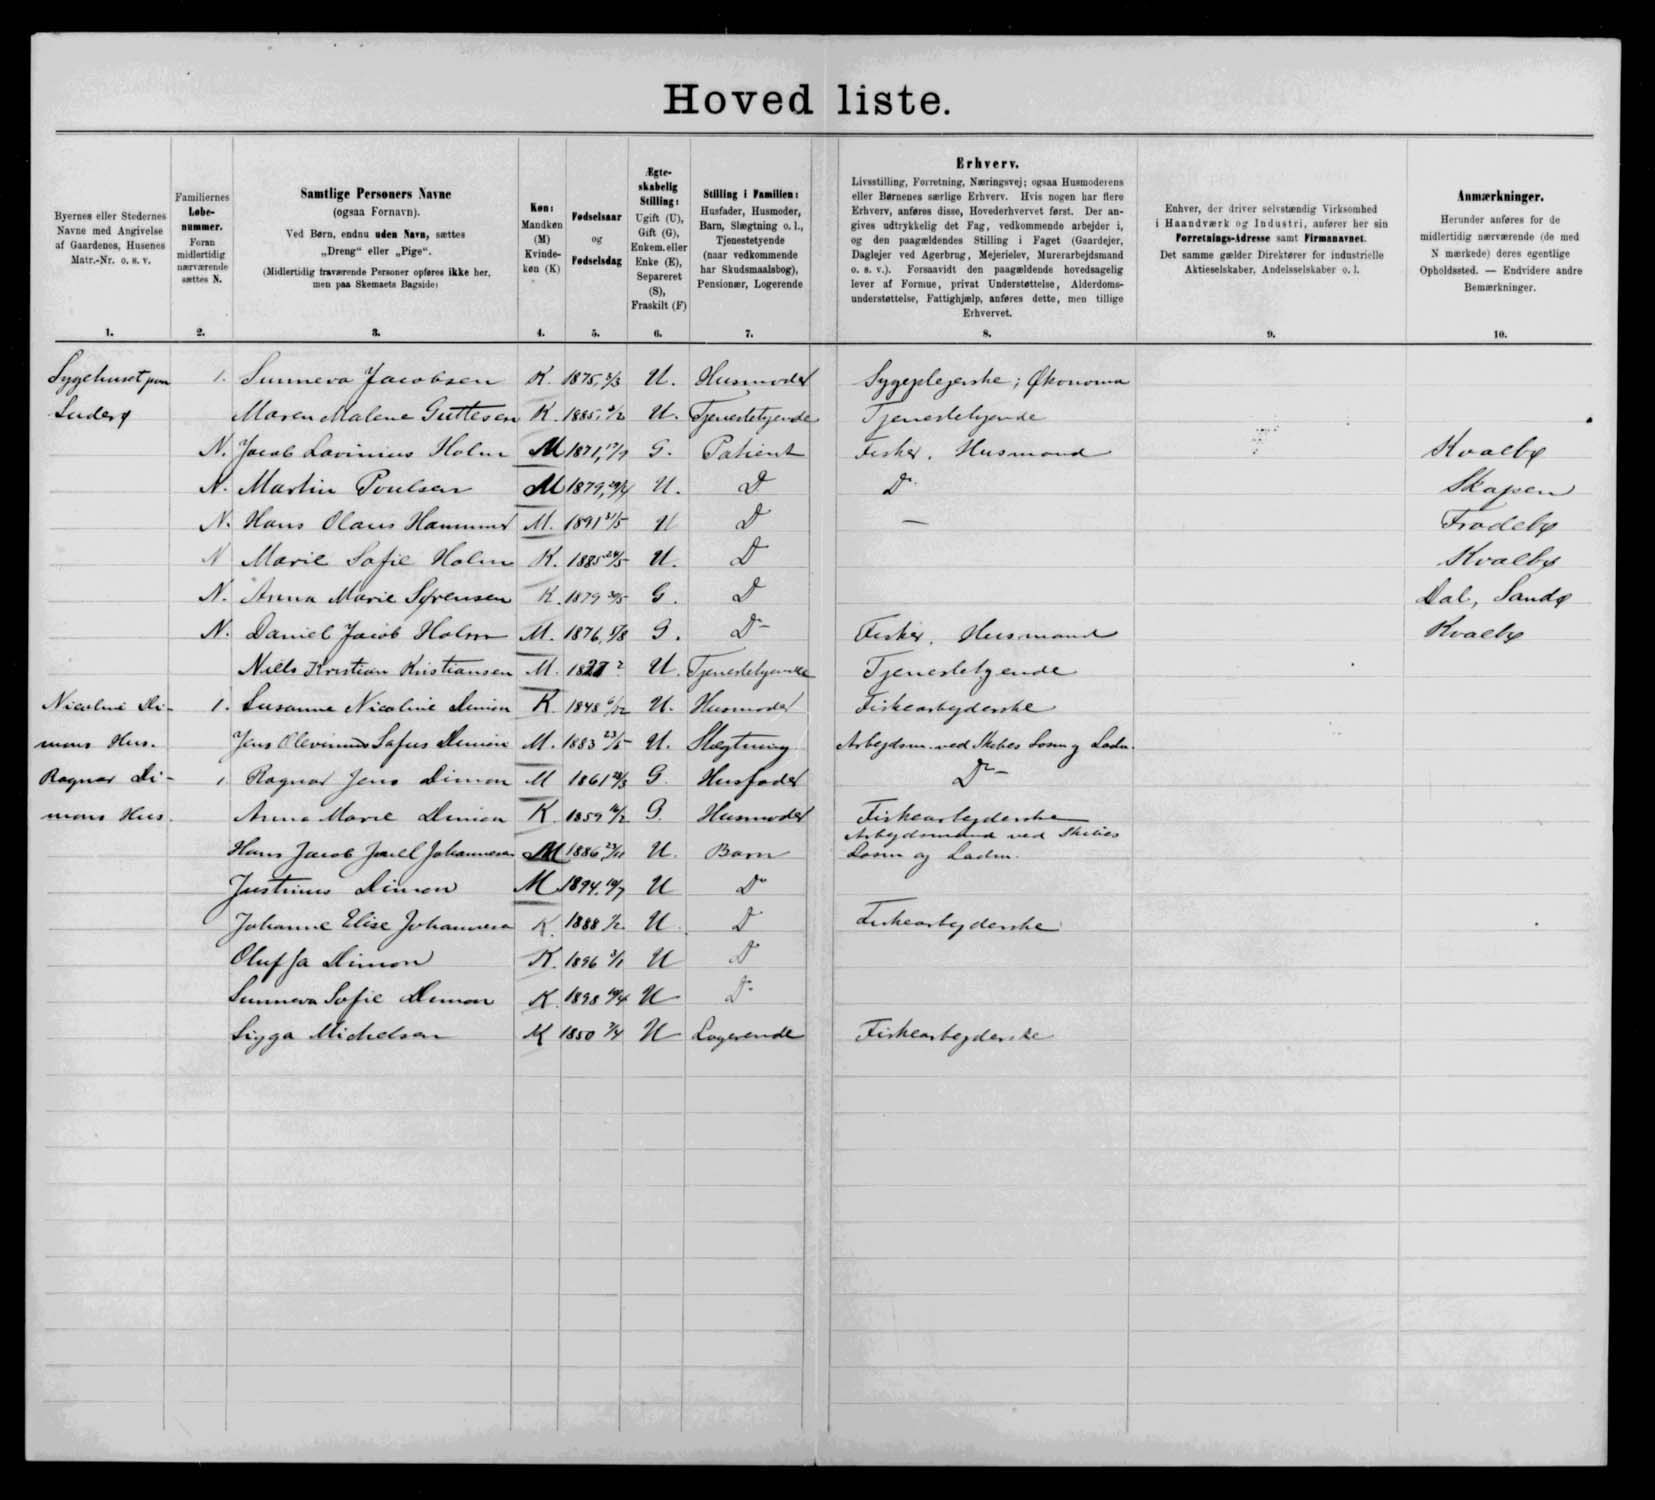 Hovedliste.
Byernes eller Stedernes
Navne med Angivelse
af Gaardenes, Husenes
Matr.-Nr. o. s. v.
1.
Familiernes
Løbe-
nummer.
Foran
midlertidig
nærværende
sættes N.
2.
Samtlige Personers Navne
(ogsaa Fornavn).
Ved Børn, endnu uden Navn, sættes
„Dreng“ eller „Pige“.
(Midlertidig fraværende Personer opføres ikke her,
men paa Skemaets Bagside)
3.
Køn:
Mandkøn
(M)
Kvinde-
køn (K)
4.
Fødselsaar
og
Fødselsdag
5.
Ægte-
skabelig
Stilling:
Ugift (U),
Gift (G),
Enkem. eller
Enke (E),
Separeret
(S),
Fraskilt (F)
6.
Stilling i Familien:
Husfader, Husmoder,
Barn, Slægtning o. l.,
Tjenestetyende
(naar vedkommende
har Skudsmaalsbog),
Pensionær, Logerende
7.
Erhverv.
Livsstilling, Forretning, Næringsvej; ogsaa Husmoderens
eller Børnenes særlige Erhverv. Hvis nogen har flere
Erhverv, anføres disse, Hovederhvervet først. Der an-
gives udtrykkelig det Fag, vedkommende arbejder i,
og den paagældendes Stilling i Faget (Gaardejer,
Daglejer ved Agerbrug, Mejerielev, Murerarbejdsmand
o. s. v.). Forsaavidt den paagældende hovedsagelig
lever af Formue, privat Understøttelse, Alderdoms-
understøttelse, Fattighjælp, anføres dette, men tillige
Erhvervet.
8.
Enhver, der driver selvstændig Virksomhed
i Haandværk og Industri, anfører her sin
Forretnings-Adresse samt Firmanavnet.
Det samme gælder Direktører for industrielle
Aktieselskaber, Andelsselskaber o. l.
9.
Anmærkninger.
Herunder anføres for de
midlertidig nærværende (de med
N mærkede) deres egentlige
Opholdssted. — Endvidere andre
Bemærkninger.
10.
Sygehuset paa 1. Sunneva Jacobsen K. 1875, U. Husmoder Sygeplejerske; Økonoma
Suderø Maren Malene Guttesen K. 1885, U. Tjenestetyende Tjenestetyende
N. Jacob Lavinius Holm M 1871, G. Patient Fisker, Husmand Kvalbø
N. Martin Poulsen M 1879, 29/4 U. Do Do Skapen
N. Hans Olaus Hammer M. 1891 21/5 U Do — Frodebø
N Marie Sofie Holm K. 1885 24/5 U. Do Kvalbø
N. Anna Marie Sørensen K. 1879 G. Do Dal, Sandø
N. Daniel Jacob Holm M. 1876, 5/8 G. Do Fisker, Husmand Kvalbø
Niels Kristian Kristiansen M. 1827 ? U. Tjenestetyende Tjenestetyende
Nicoline Di- 1. Susanne Nicoline Dimon K. 1848 6/12 U. Husmoder Fiskearbejderske
mons Hus. Jens Olevinus Sofus Dimon M. 1883 23/5 U. Slægtning Arbejdsm. ved Skibes Losn. og Ladn.
Ragnar Di- 1 Ragnar Jens Dimon M 1861 28/3 G. Husfader Do
mons Hus. Anna Marie Dimon K. 1859 16/2 G. Husmoder Fiskearbejderske
Hans Jacob Joell Johannesen M 1886 23/11 U. Barn Arbejdsmand ved Skibes
Losn. og Ladn.
Justinus Dimon M 1894, 19/7 U Do
Johanne Elise Johannesen K. 1888 U Do Fiskearbejderske
Olufja Dimon K. 1896 3/1 U Do
Sunneva Sofie Dimon K. 1898 U Do
Sigga Michelsen K 1850 7/4 U Logerende Fiskearbejderske